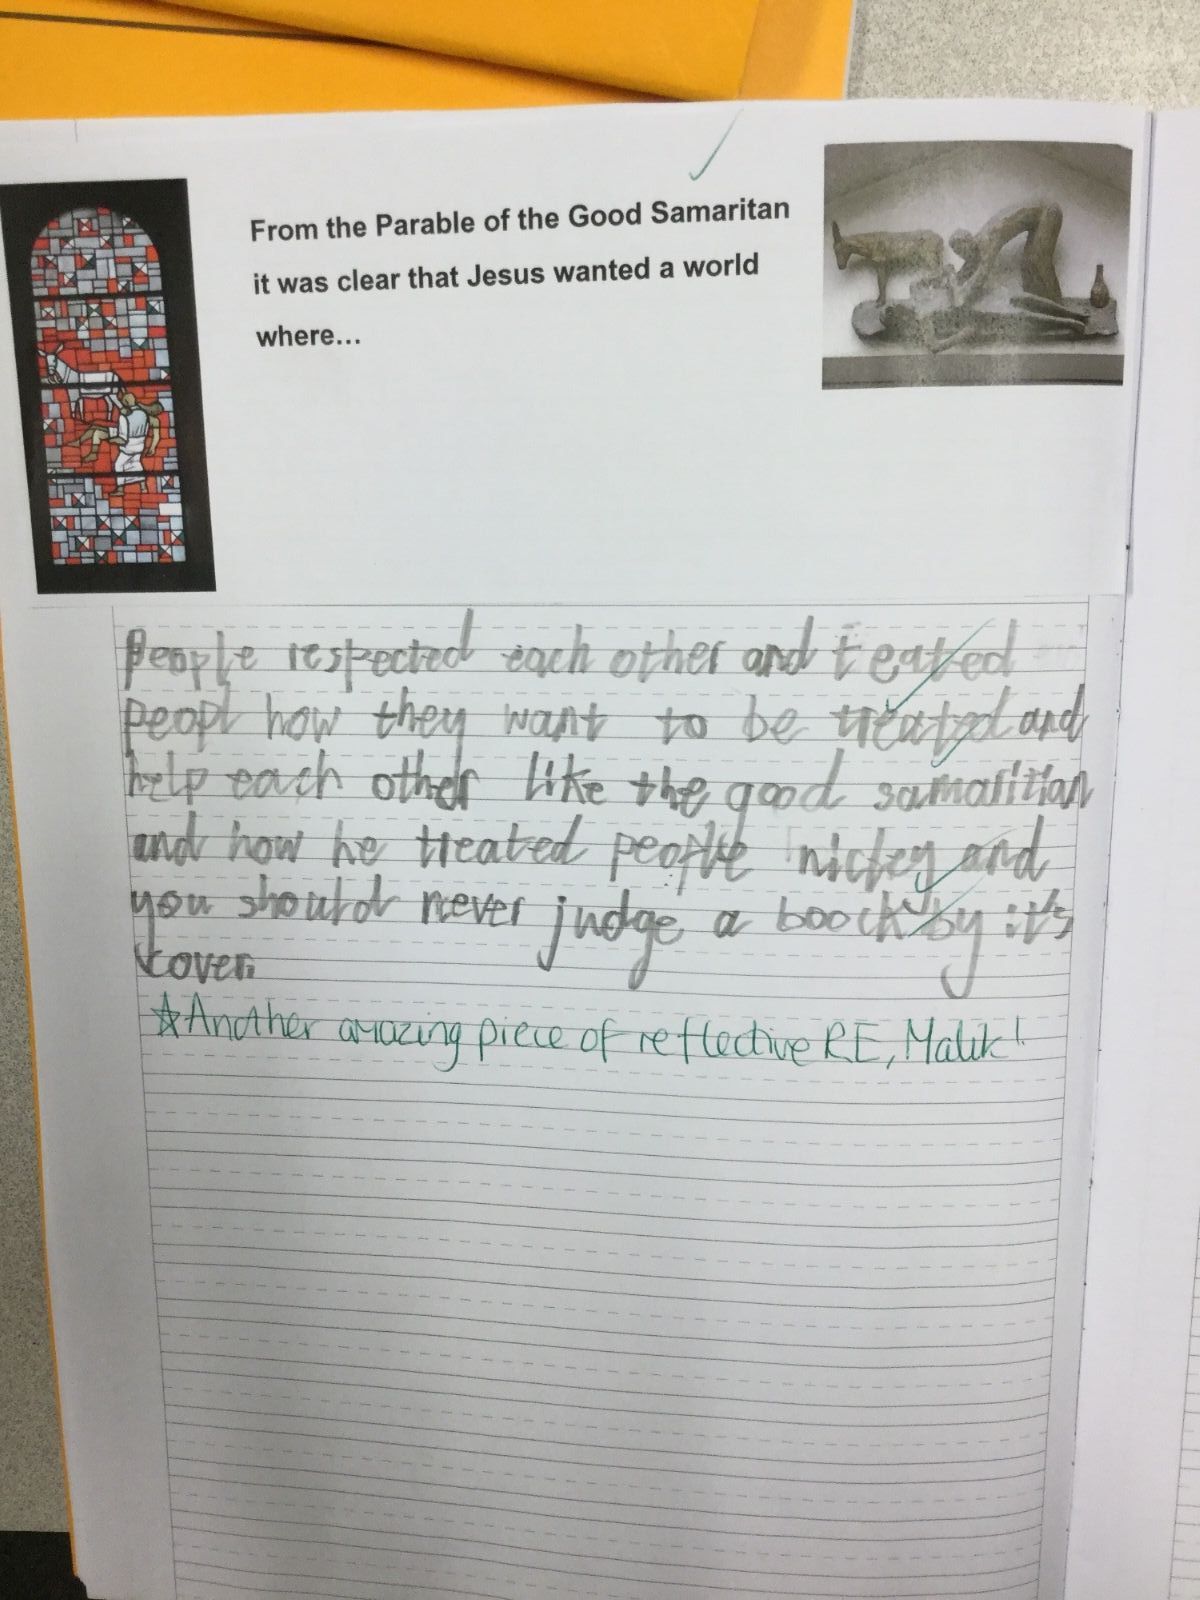 From the Parable of the Good Samaritan
it was clear that Jesus wanted a world
where...
people respected each other and teated
peopl how they want to be treated and
help each other like the good samaritian
and how he treated people nicley and
you should never judge a boock by it's
cover.
☆Another amazing piece of reflective RE, Malik!